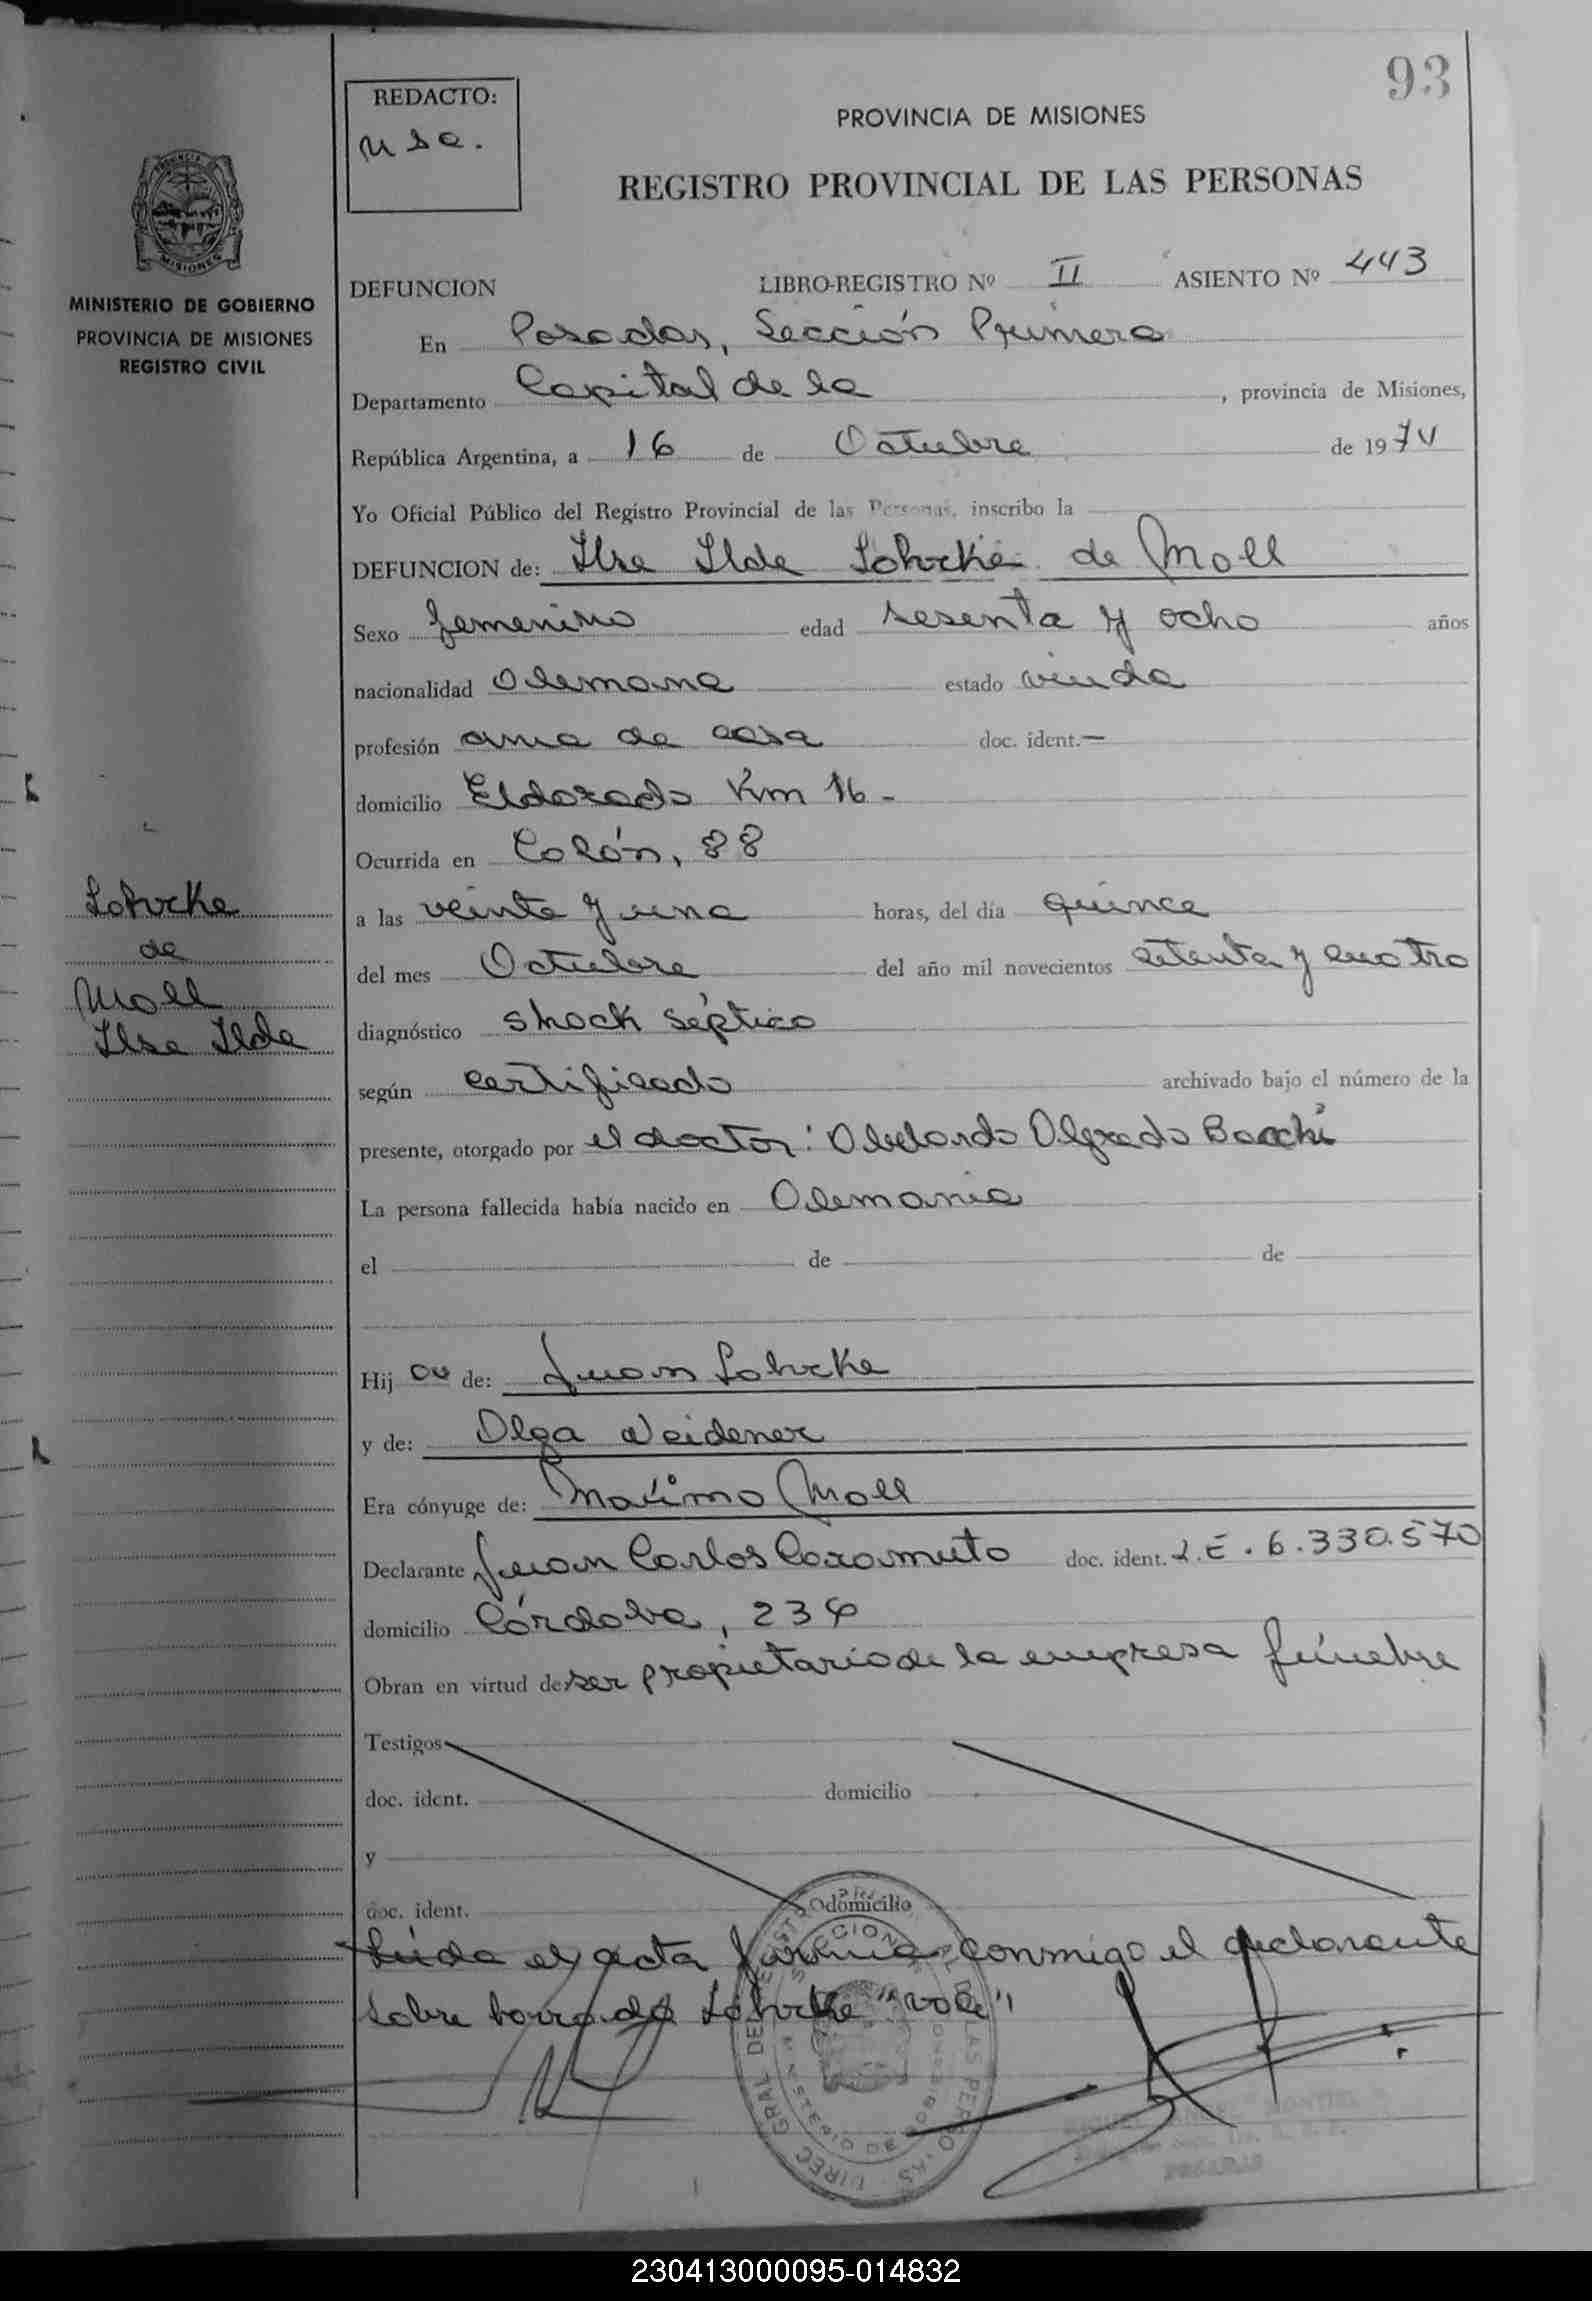 93
REDACTO:
PROVINCIA DE MISIONES
REGISTRO PROVINCIAL DE LAS PERSONAS
PROVINCIA DE
MISIONES
MINISTERIO DE GOBIERNO
PROVINCIA DE MISIONES
REGISTRO CIVIL
DEFUNCION LIBRO-REGISTRO Nº II ASIENTO Nº 443
En Posadas, Sección Primera
Departamento Capital de la , provincia de Misiones,
República Argentina, a 16 de Octubre de 1974
Yo Oficial Público del Registro Provincial de las Personas, inscribo la
DEFUNCION de: Ilse Ilde Lohrke de Moll
Sexo femenino edad sesenta y ocho años
nacionalidad Alemana estado viuda
profesión ama de casa doc. ident.—
domicilio Eldorado Km 16-
Ocurrida en Colón, 88
a las veinte y una horas, del día quince
del mes Octubre del año mil novecientos setenta y cuatro
diagnóstico shock séptico
según certificado archivado bajo el número de la
presente, otorgado por el doctor: Abelardo Alfredo Bacchi
La persona fallecida había nacido en Alemania
el de de
Hij de: Juan Lohrke
y de: Olga Weidener
Era cónyuge de: Maximo Moll
Declarante Juan Carlos Caramuto doc. ident. L.E. 6.330.570
domicilio Córdoba, 234
Obran en virtud de ser propietario de la empresa fúnebre
Testigos
doc. ident. domicilio
y
doc. ident. domicilio
Leída el acta firma conmigo el declarante
sobre borrado Lohrke "vale"
Lohrke
de
Moll
Ilse Ilde
MINISTERIO DE GOBIERNO
MIGUEL ANGEL MONTIEL
POSADAS
230413000095-014832